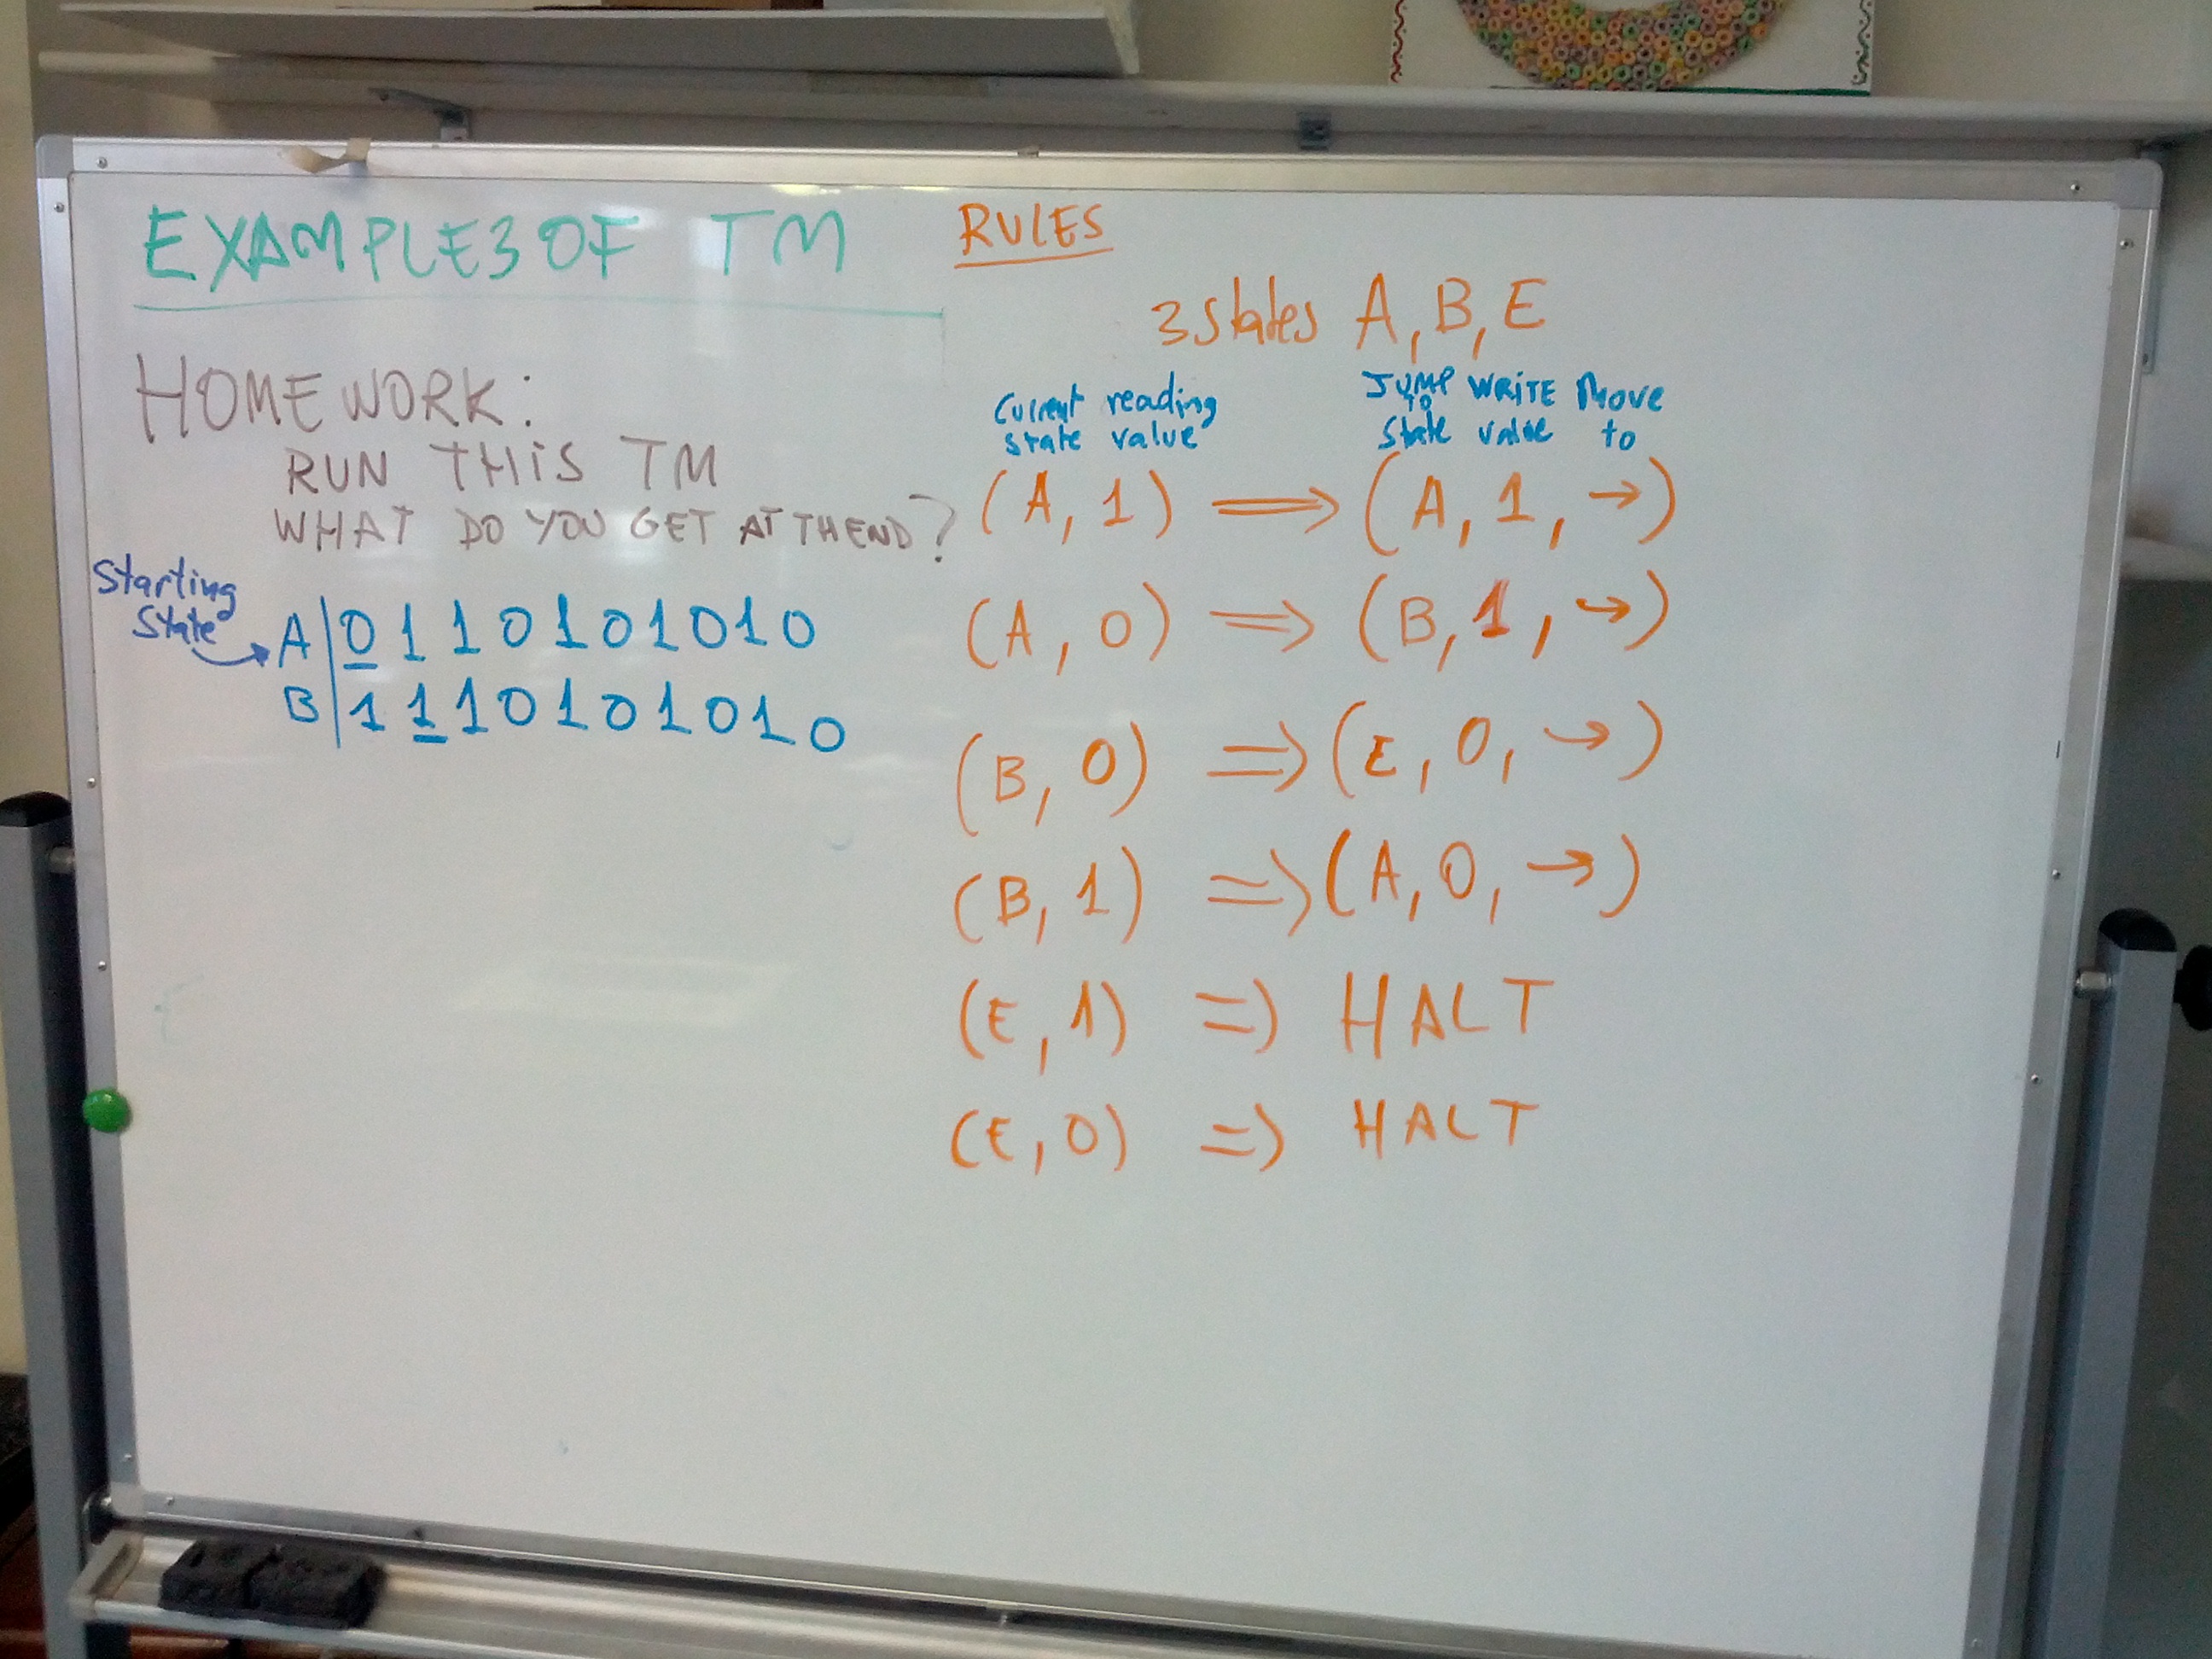 EXAMPLE3 OF TM
HOMEWORK:
RUN THIS TM
WHAT DO YOU GET AT THEND?
Starting
State
A|0110101010
B|1110101010
RULES
3 states A, B, E
Current reading
state value
JUMP WRITE Move
TO
State value to
(A, 1) ⟹ (A, 1, →)
(A, 0) ⟹ (B, 1, →)
(B, 0) ⟹ (E, 0, →)
(B, 1) ⟹ (A, 0, →)
(E, 1) ⟹ HALT
(E, 0) ⟹ HALT